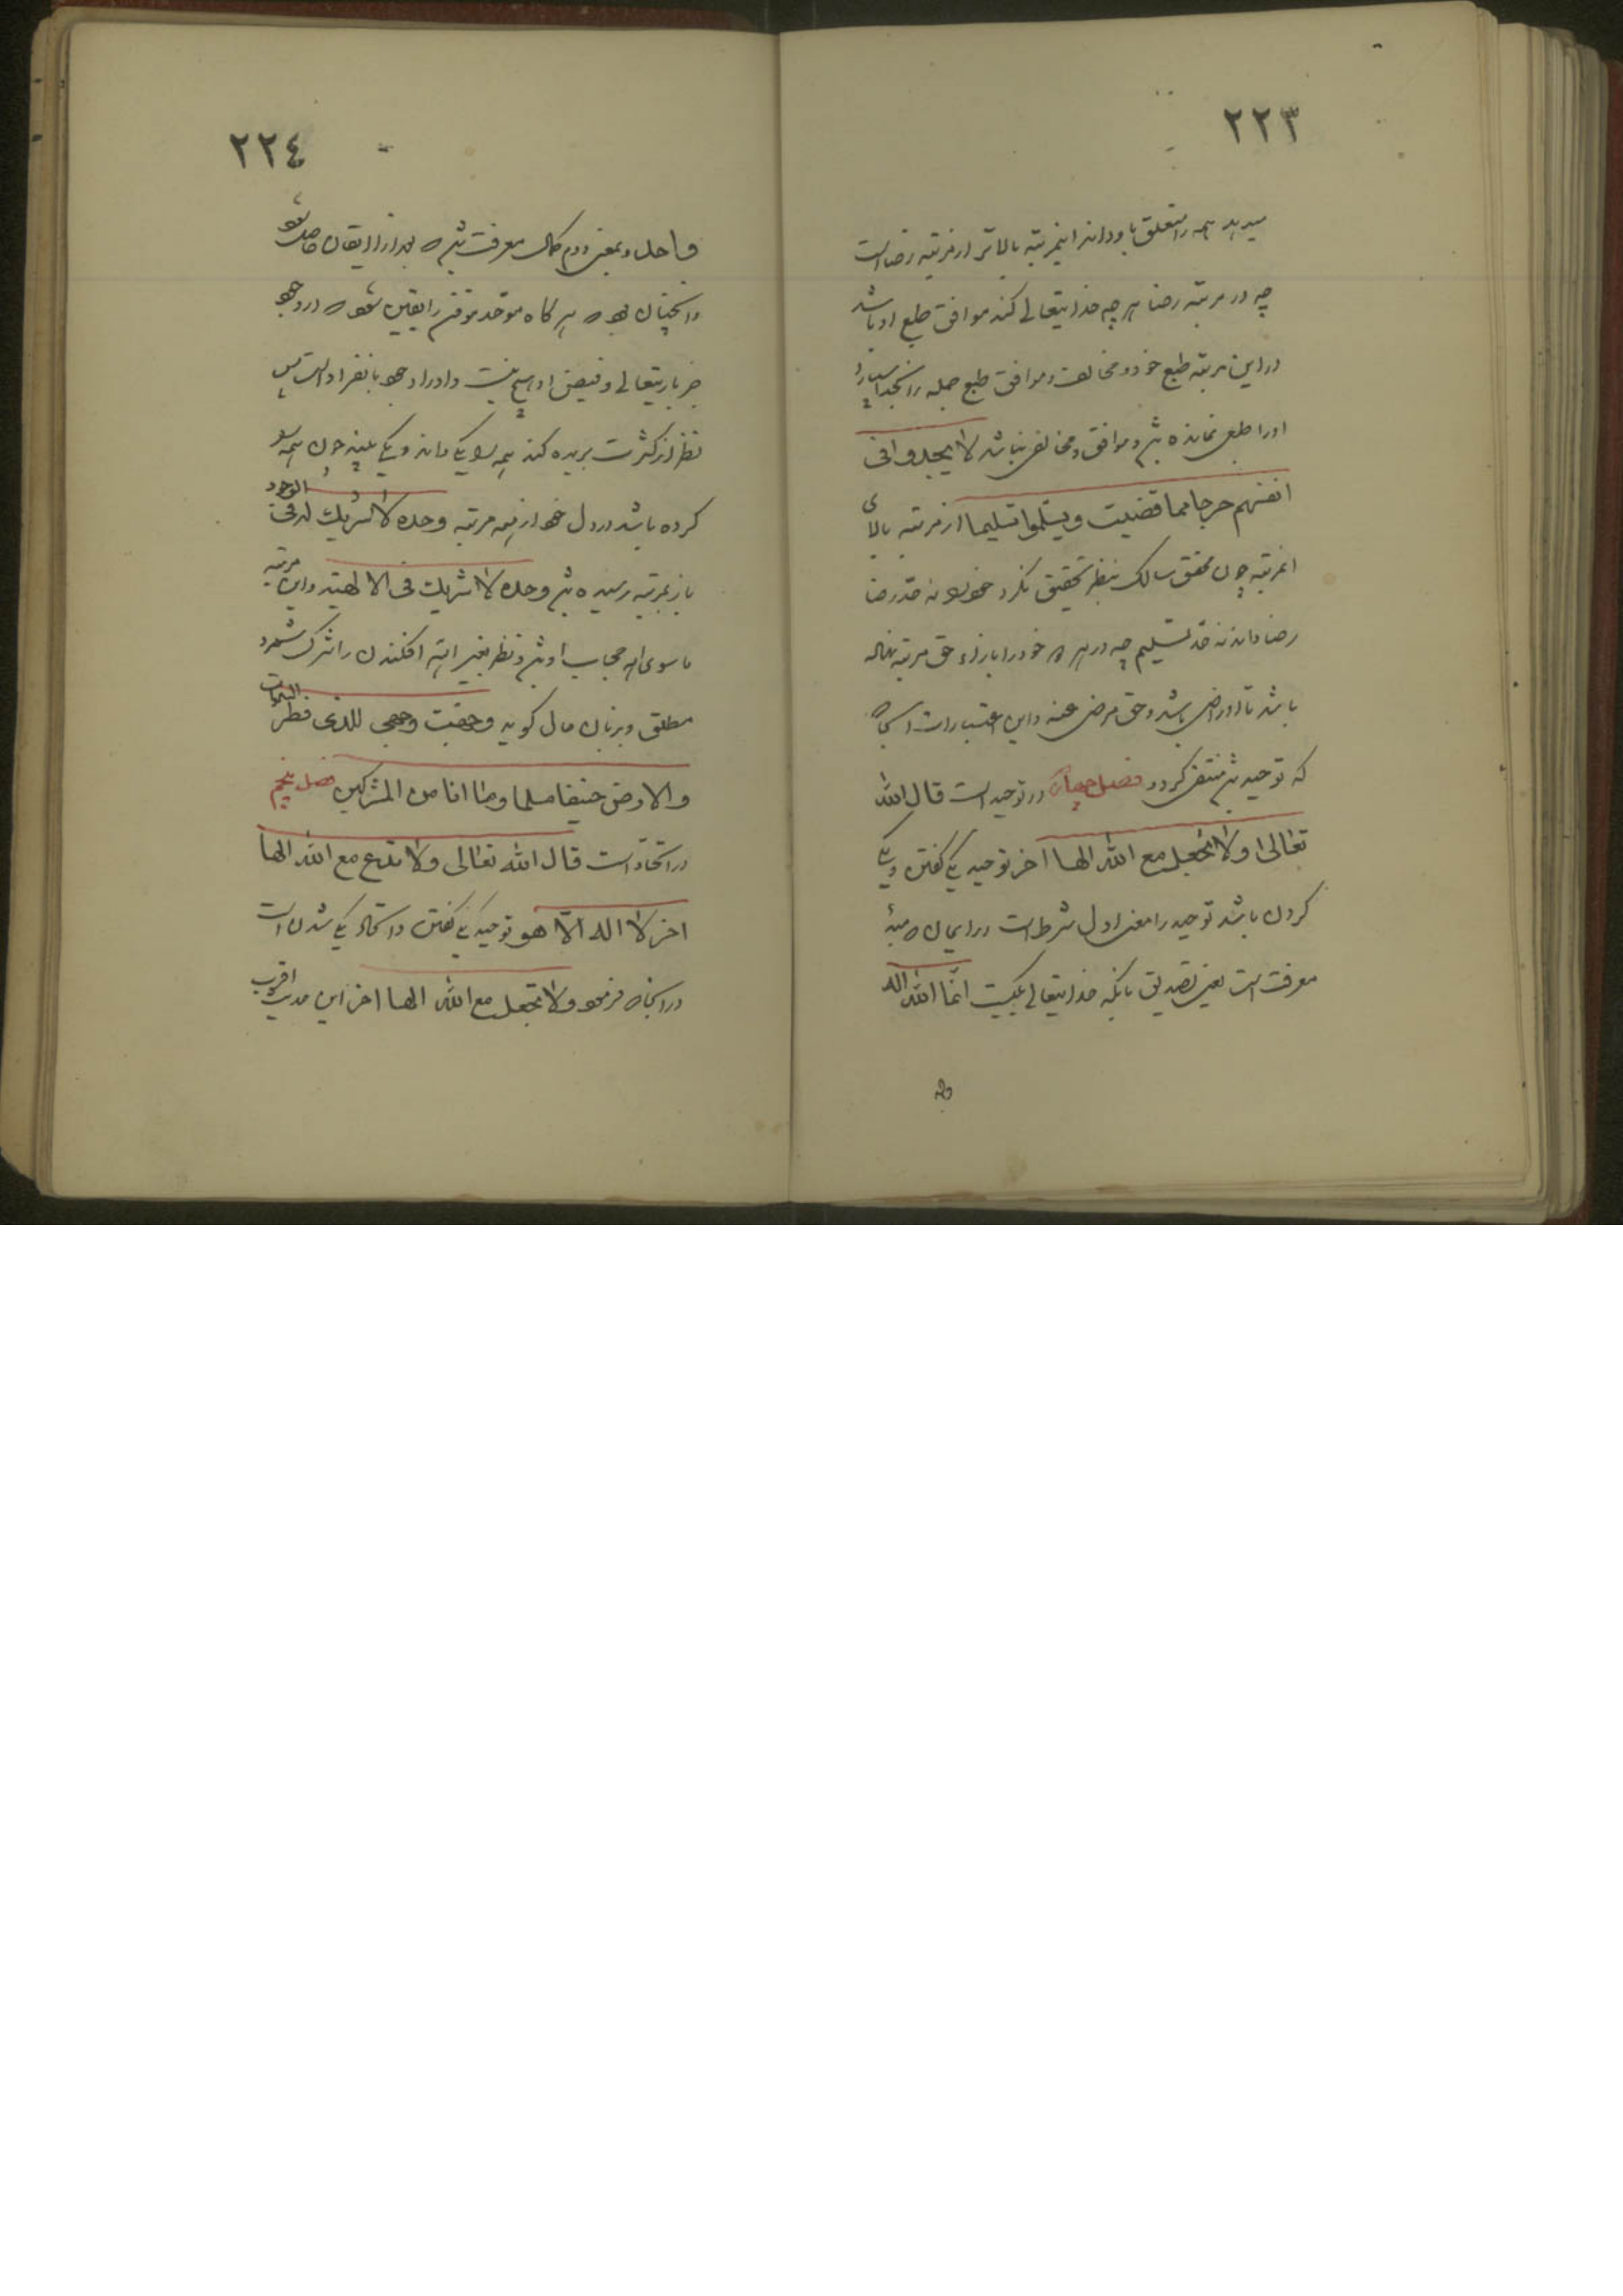 ٢٢٣
میدید همه را متعلق باو داند اینمرتبه بالاتر از مرتبه رضاست
چه در مرتبه رضا هر چه خدایتعالی کند موافق طبع او باشد
در این مرتبه طبع خود و مخالفت و موافق طبع جمله را بخدا سپارد
او را طبعی نمانده بود و موافق و مخالفی نباشد لا یجدوا فی
انفسهم حرجا مما قضیت ویسلموا تسلیما از مرتبه بالای
انمرتبه چون محقق سالک بنظر تحقیق نکرد خود را نه حد رضا
رضا داند نه حد تسلیم چه در هر دو خود را بازاء حق مرتبه نهاده
باشد تا او راضی باشد و حق مرضی عنه و این اعتبارات انجا
که توحید بود منتفی کردد فصل چهارم در توحید است قال الله
تعالی ولا تجعل مع الله الها اخر توحید یکی کفتن و یکی
کردن باشد توحید را معنی اول شرط است در ایمان که مبدأ
معرفت است یعنی تصدیق بانکه خدایتعالی یکیست انما الله اله
٢٢٤
واحد و بمعنی دوم کمال معرفت بود که بعد از ایقان حاصل شود
و انچنان بود که هر کاه موحد موقن را یقین شود که در وجود
جز باریتعالی و فیض او هیچ نیست و او را وجود بانفراد است پس
نظر از کثرت بریده کند همه را یکی داند و یکی بیند چون همه را
کرده باشد در دل خود از نیمه مرتبه وحده لا شریک له فی الوجود
باز بمرتبه رسیده بود وحده لا شریک فی الالهیته و این مرتبه
ما سوی الله حجاب او بود و نظر بغیر الله افکندن را شرک شمرد
مطلق و بزبان حال کوید وجهت وجهی للذی فطر السموات
والارض حنیفا مسلما وما انا من المشرکین فصل پنجم
در اتحاد است قال الله تعالی ولا تدع مع الله الها
اخر لا اله الا هو توحید یکی کفتن و اتحاد یکی شدن است
در انجا که فرمود ولا تجعل مع الله الها اخر این مدیت اقرب